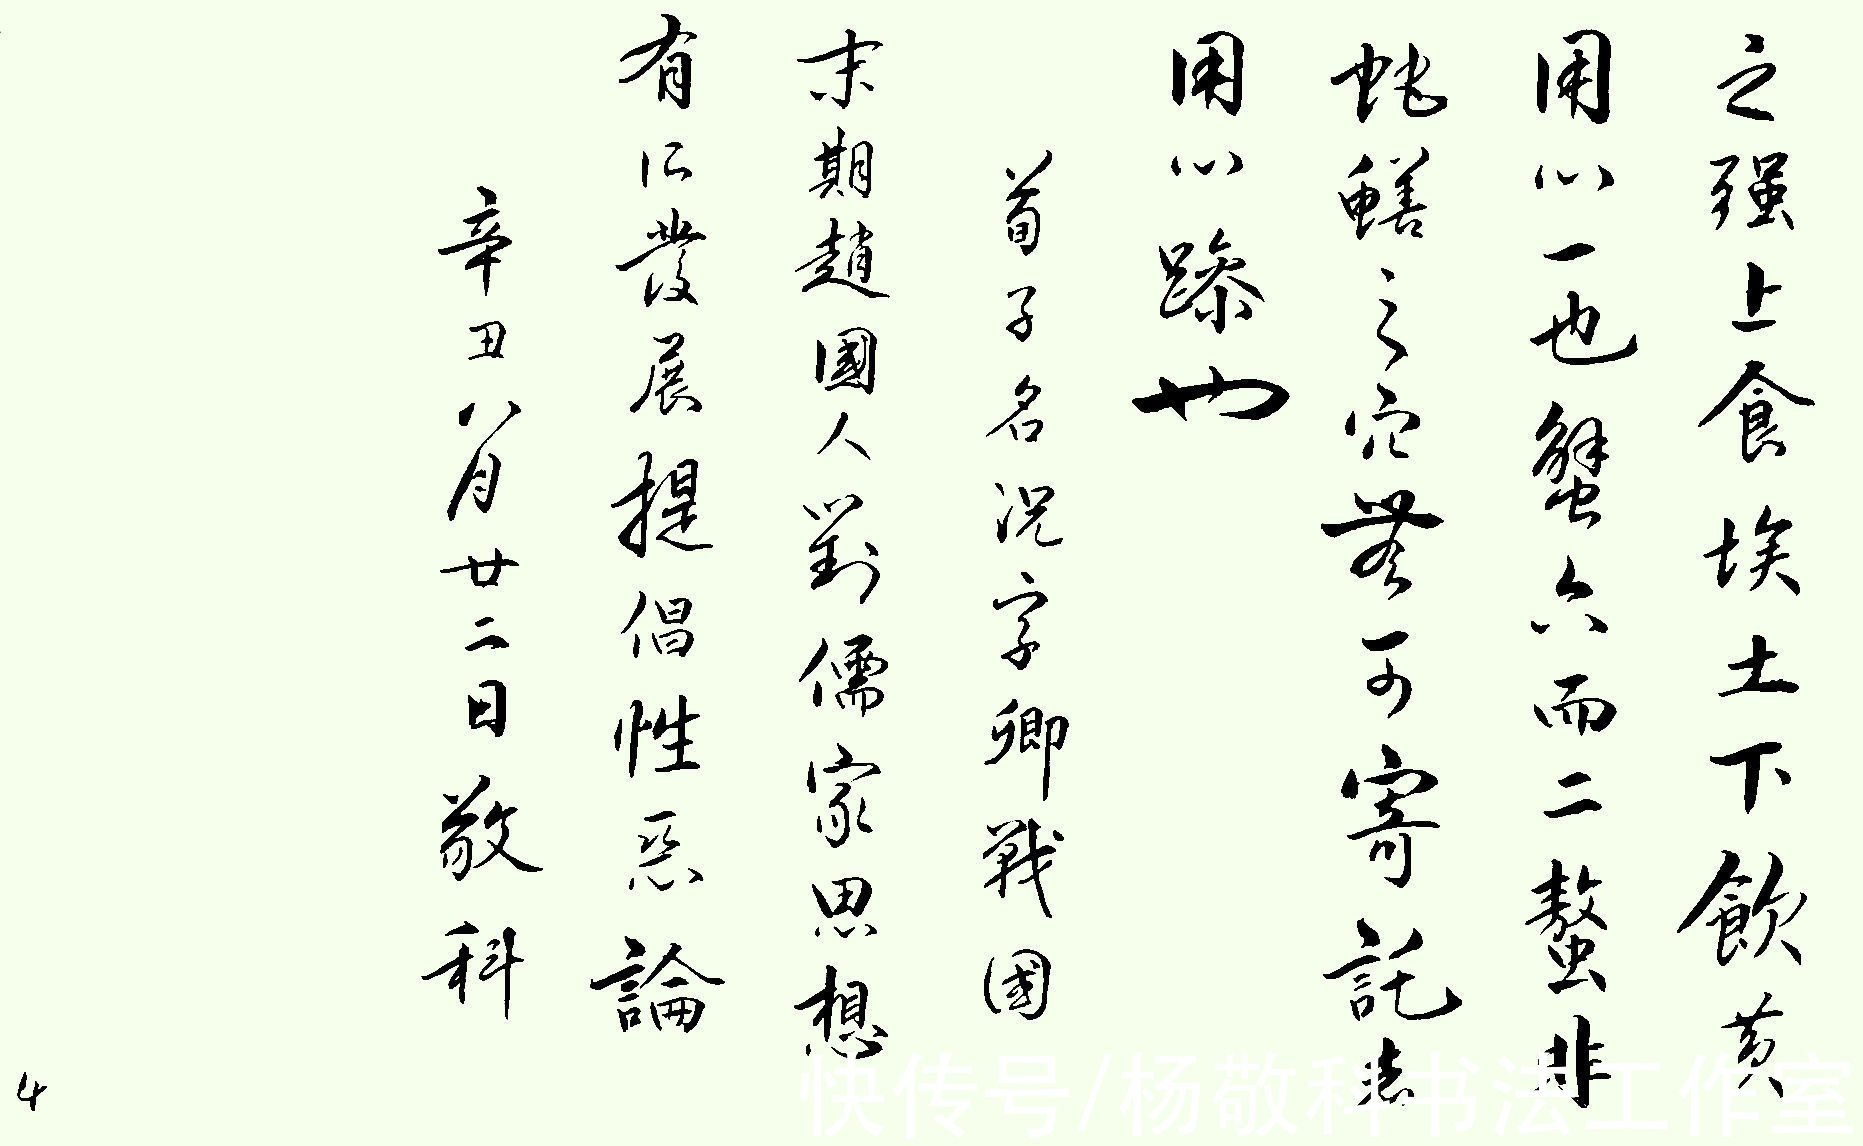 之强上食埃土下飲黄
用心一也蟹六而二螯非
蛇鱔之穴無可寄託者
用心躁也
荀子名況字卿戰國
末期趙國人對儒家思想
有所發展提倡性惡論
辛丑八月廿二日敬科
4
快传号/杨敬科书法工作室